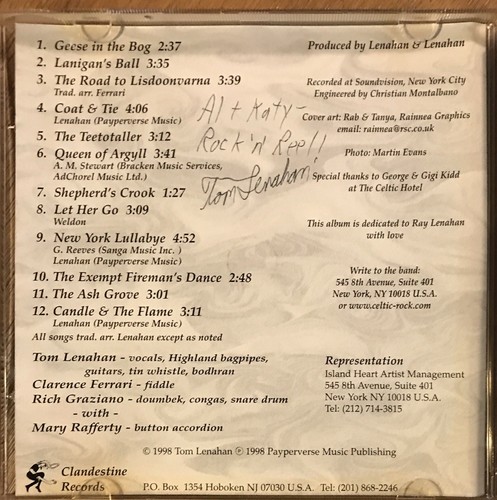 1. Geese in the Bog 2:37
2. Lanigan's Ball 3:35
3. The Road to Lisdoonvarna 3:39
Trad. arr. Ferrari
4. Coat & Tie 4:06
Lenahan (Payperverse Music)
5. The Teetotaller 3:12
6. Queen of Argyll 3:41
A. M. Stewart (Bracken Music Services,
AdChorel Music Ltd.)
7. Shepherd's Crook 1:27
8. Let Her Go 3:09
Weldon
9. New York Lullabye 4:52
G. Reeves (Sanga Music Inc. )
Lenahan (Payperverse Music)
10. The Exempt Fireman's Dance 2:48
11. The Ash Grove 3:01
12. Candle & The Flame 3:11
Lenahan (Payperverse Music)
All songs trad. arr. Lenahan except as noted
Al + Katy -
Rock 'n Reel!!
Tom Lenahan
Produced by Lenahan & Lenahan
Recorded at Soundvision, New York City
Engineered by Christian Montalbano
Cover art: Rab & Tanya, Rainnea Graphics
email: rainnea@rsc.co.uk
Photo: Martin Evans
Special thanks to George & Gigi Kidd
at The Celtic Hotel
This album is dedicated to Ray Lenahan
with love
Write to the band:
545 8th Avenue, Suite 401
New York, NY 10018 U.S.A.
or www.celtic-rock.com
Tom Lenahan - vocals, Highland bagpipes,
guitars, tin whistle, bodhran
Clarence Ferrari - fiddle
Rich Graziano - doumbek, congas, snare drum
- with -
Mary Rafferty - button accordion
Representation
Island Heart Artist Management
545 8th Avenue, Suite 401
New York NY 10018 U.S.A.
Tel: (212) 714-3815
© 1998 Tom Lenahan Ⓟ 1998 Payperverse Music Publishing
Clandestine
Records
P.O. Box 1354 Hoboken NJ 07030 U.S.A. Tel: (201) 868-2246